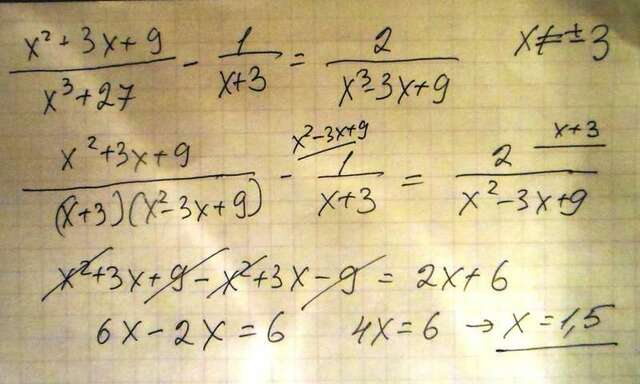 (x² + 3x + 9)/(x³ + 27) - 1/(x+3) = 2/(x³ - 3x + 9) x ≠ ± 3
(x² + 3x + 9)/((x+3)(x² - 3x + 9)) - 1/(x+3) x² - 3x + 9 = 2/(x² - 3x + 9) x+3
x² + 3x + 9 - x² + 3x - 9 = 2x + 6
6x - 2x = 6 4x = 6 → x = 1,5